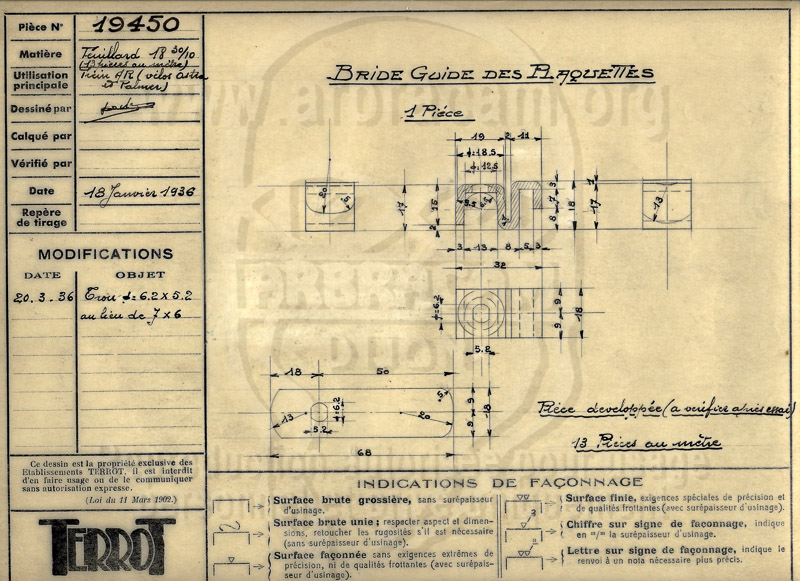 Pièce N° 19450
Matière Feuillard 18 30/10
(13 pièces au mètre)
Utilisation principale Train AR (vélos Astra
et Palmer)
Dessiné par
Calqué par
Vérifié par
Date 18 Janvier 1936
Repère de tirage
MODIFICATIONS
DATE OBJET
20.3.36 Trou ϕ=6.2x5.2
au lieu de 7x6
Ce dessin est la propriété exclusive des
Etablissements TERROT, il est interdit
d'en faire usage ou de le communiquer
sans autorisation expresse.
(Loi du 11 Mars 1902.)
TERROT
BRIDE GUIDE DES PLAQUETTES
1 Pièce
19 2 11
ϕ=18.5
ϕ=12.5
20 5
17 15 2
9.5
3 8 18 17
13
3 13 8 5 3
32
ϕ=6.2
9 9 18
5.2
18 50
13 ϕ=6.2 5.2 20 5
9 9 18
68
Pièce developpée (a verifier après essai)
13 Pièces au mètre
INDICATIONS DE FAÇONNAGE
Surface brute grossière, sans surépaisseur
d'usinage.
Surface brute unie; respecter aspect et dimensions,
retoucher les rugosités s'il est nécessaire
(sans surépaisseur d'usinage).
Surface façonnée sans exigences extrêmes de
précision, ni de qualités frottantes (avec surépaisseur
d'usinage).
Surface finie, exigences spéciales de précision et
de qualités frottantes (avec surépaisseur d'usinage).
Chiffre sur signe de façonnage, indique
en "/" la surépaisseur d'usinage.
Lettre sur signe de façonnage, indique le
renvoi à un nota nécessaire plus précis.
www.arbracam.org